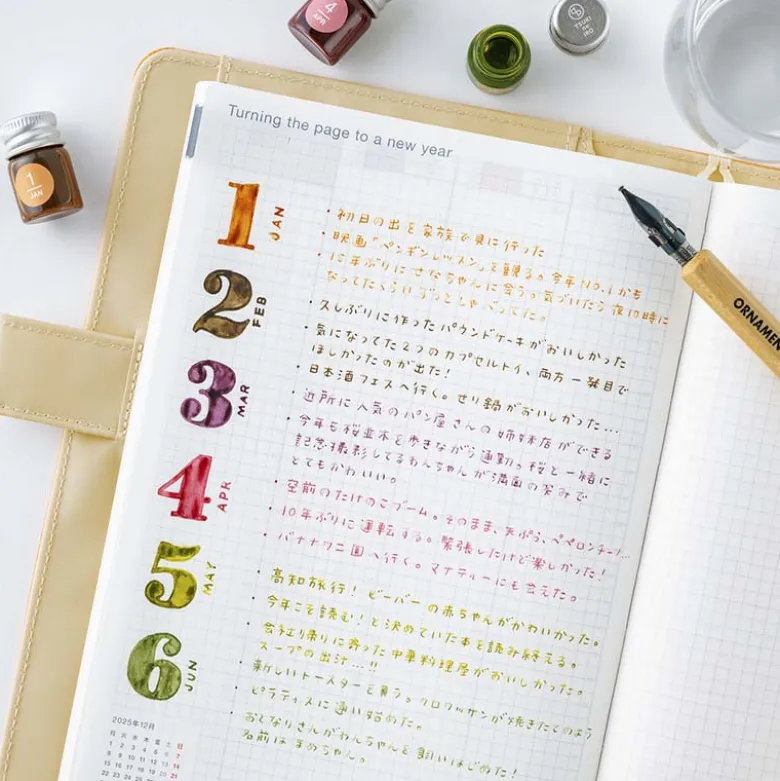 4
APR
TSUKI
no
IRO
1
JAN
Turning the page to a new year
1
JAN
・初日の出を家族で見に行った
・映画「ペンギンレッスン」を観る。今年NO.1かも
・12年ぶりにせなちゃんに会う。気づいたら夜10時に
なってたくらいずっとしゃべってた。
2
FEB
・久しぶりに作ったパウンドケーキがおいしかった
・気になってた2つのカプセルトイ、両方一発目で
ほしかったのが出た！
・日本酒フェスへ行く。せり鍋がおいしかった…
3
MAR
・近所に人気のパン屋さんの姉妹店ができる
・今年も桜並木を歩きながら通勤。桜と一緒に
記念撮影してるわんちゃんが満面の笑みで
とてもかわいい。
4
APR
・空前のたけのこブーム。そのまま、天ぷら、ペペロンチーノ…
・10年ぶりに運転する。緊張したけど楽しかった！
・バナナワニ園へ行く。マナティーにも会えた。
5
MAY
・高知旅行！ビーバーの赤ちゃんがかわいかった。
・今年こそ読む！と決めていた本を読み終える。
・会社帰りに寄った中華料理屋がおいしかった。
スープの出汁…!!
6
JUN
・新しいトースターを買う。クロワッサンが焼きたてのよう
・ピラティスに通い始めた。
・おとなりさんがわんちゃんを飼いはじめた！
名前はまめちゃん。
2025年12月
月 火 水 木 金 土 日
1 2 3 4 5 6 7
8 9 10 11 12 13 14
15 16 17 18 19 20 21
22 23 24 25
ORNAMEN